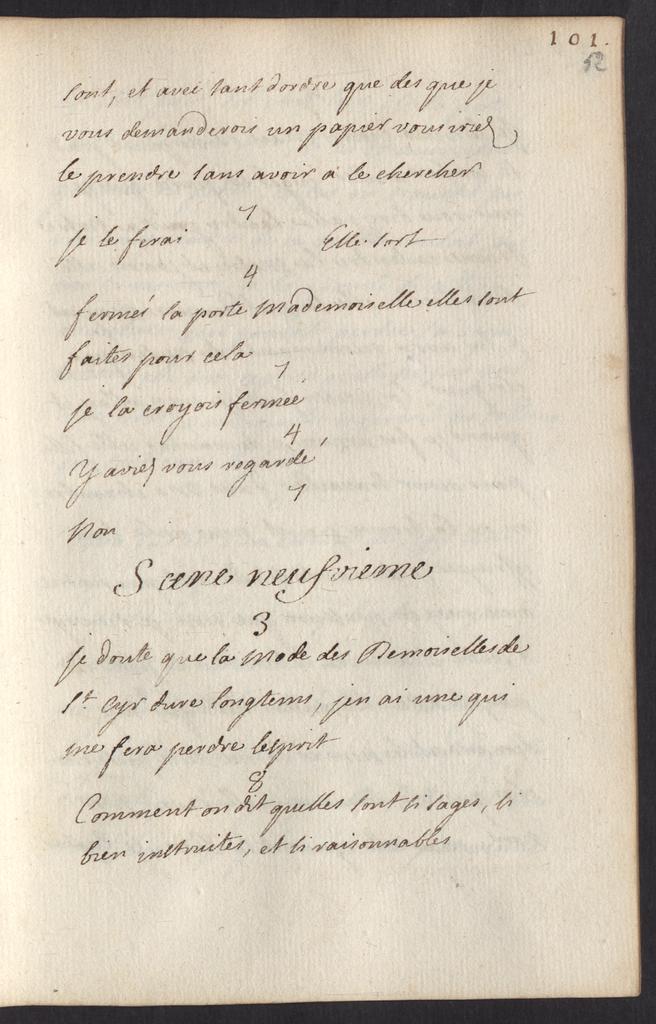 101.
52
sont, et avec tant dordre que des que je
vous demanderois un papier vous iriez
le prendre sans avoir a le chercher
7
je le ferai Elle sort
4
fermés la porte Mademoiselle elles sont
faites pour cela
7
je la croyois fermée
4
y aviez vous regardé
7
Non
Scene neufvieme
3
je doute que la Mode des Demoiselles de
St Cyr dure longtems, jen ai une qui
me fera perdre lesprit
8
Comment on dit quelles sont si sages, si
bien instruites, et si raisonnables